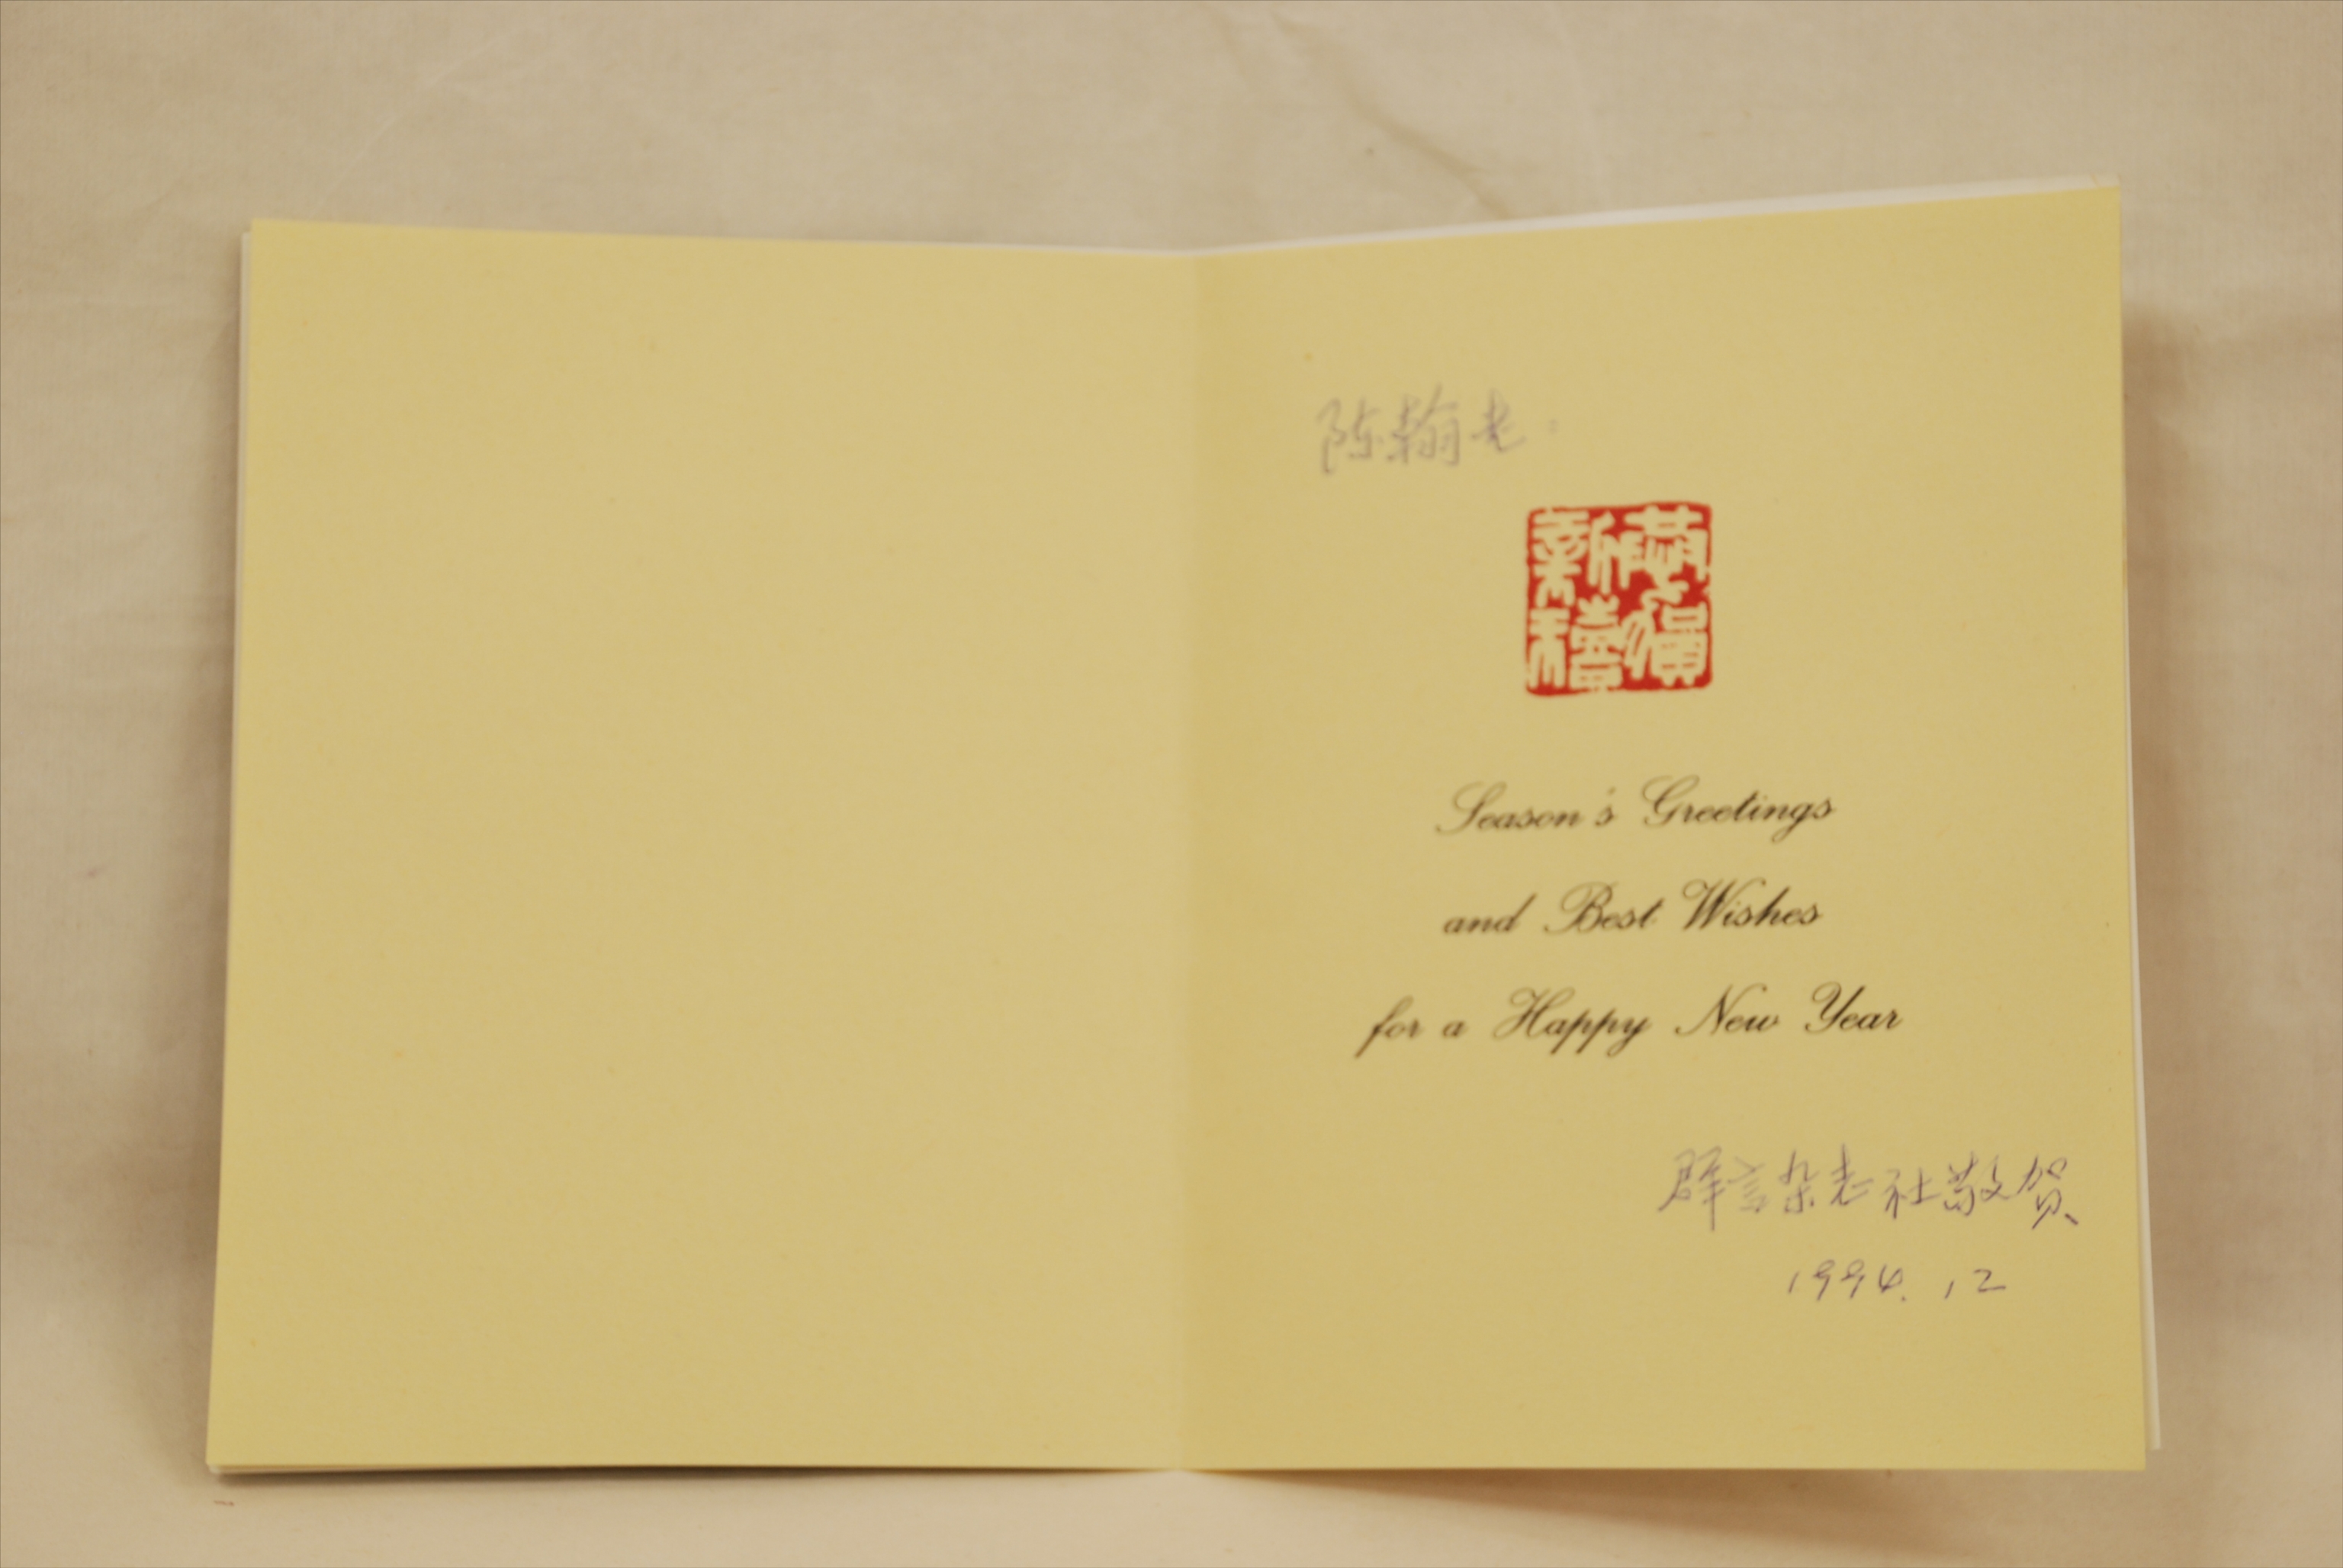 陈翰老：
恭贺新禧
Season's Greetings
and Best Wishes
for a Happy New Year
群言杂志社敬贺
1994.12